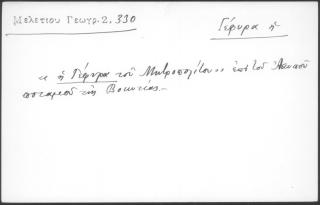 Μελετίου Γεωγρ. 2, 330
Γέφυρα ἡ
« ἡ Γέφυρα τοῦ Μητροπολίτου » ἐπὶ τοῦ
ποταμοῦ τῆς Βοιωτίας.—